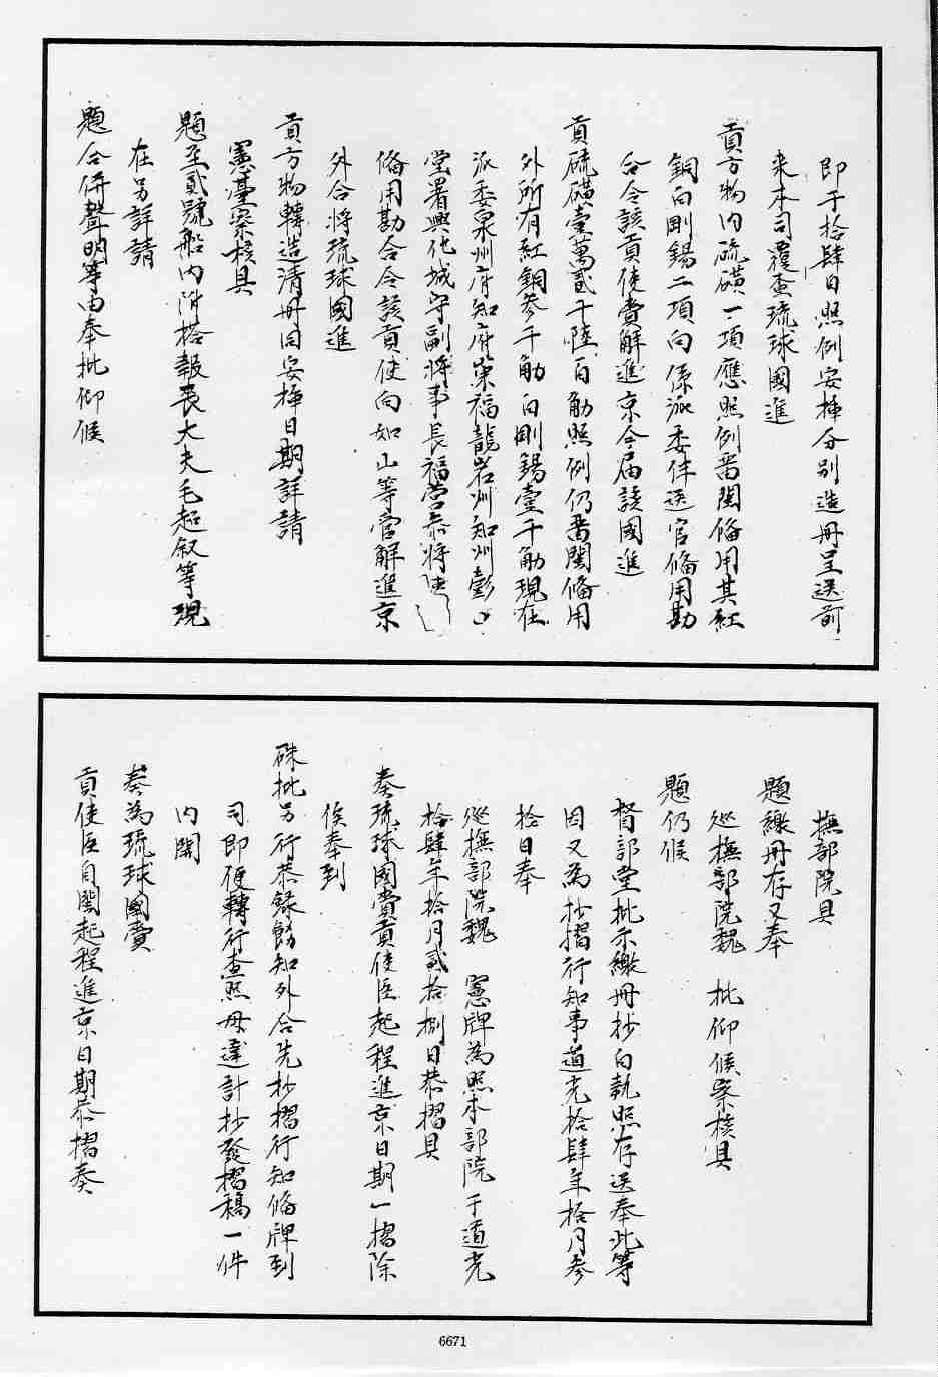 即于拾肆日照例安揷分別造冊呈送前
來本司覆查琉球國進
貢方物内硫磺一項應照例畱閩俻用其紅
銅白剛錫二項向係派委伴送官俻用勘
合令該貢使賫解進京今届該國進
貢硫磺壹萬貳千陸百觔照例仍畱閩俻用
外所有紅銅參千觔白剛錫壹千觔現在
派委泉州府知府崇福龍岩州知州彭
堂署興化城守副將事長福營叅將
俻用勘合令該貢使向如山等管解進京
外合將琉球國進
貢方物轉造清冊同安揷日期詳請
憲臺察核具
題至貳號船内附搭報喪大夫毛超叙等現
在另詳請
題合併聲明等由奉批仰候
撫部院具
題繳冊存又奉
巡撫部院魏 批仰候察核具
題仍候
督部堂批示繳冊抄白執照存送奉此等
因又為抄摺行知事道光拾肆年拾月參
拾日奉
巡撫部院魏 憲牌為照本部院于道光
拾肆年拾月貳拾捌日恭摺具
奏琉球國賫貢使臣起程進京日期一摺除
俟奉到
硃批另行恭錄飭知外合先抄摺行知俻牌到
司即便轉行查照毋違計抄發摺稿一件
内開
奏為琉球國賫
貢使臣自閩起程進京日期恭摺奏
6671